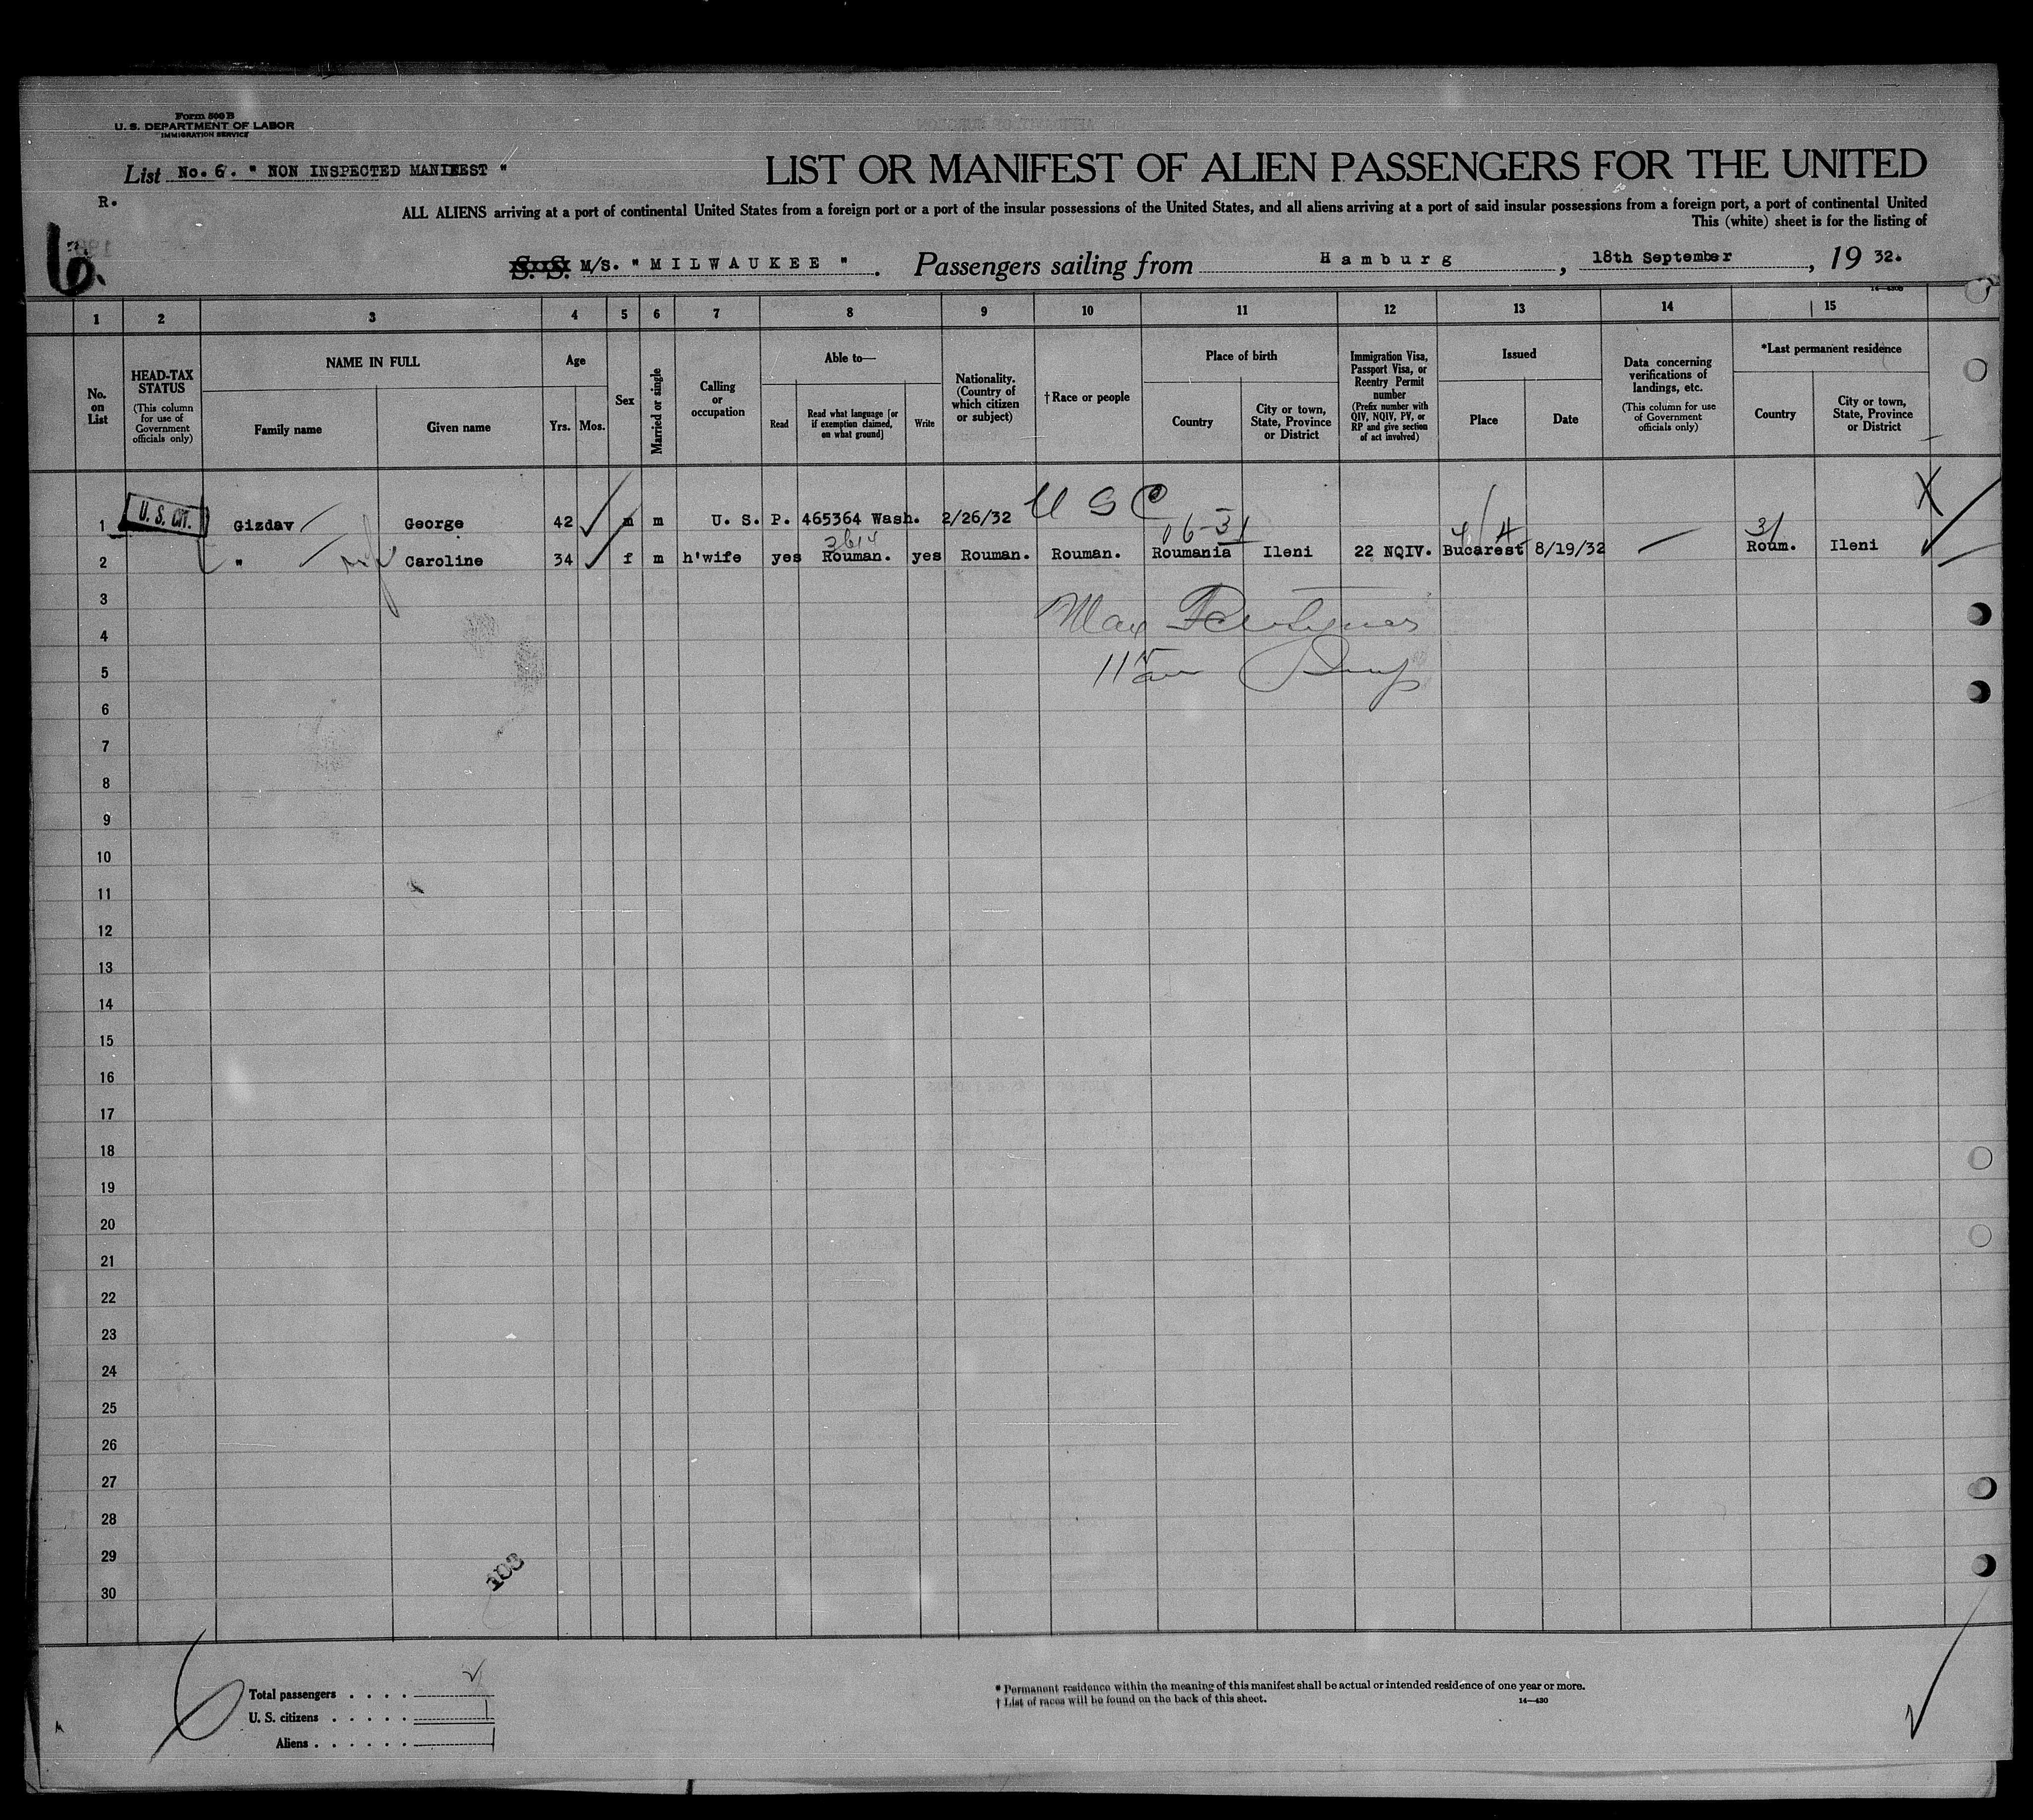 Form 500 B
U. S. DEPARTMENT OF LABOR
IMMIGRATION SERVICE
List No. 6. " NON INSPECTED MANIFEST "
R.
6.
LIST OR MANIFEST OF ALIEN PASSENGERS FOR THE UNITED
ALL ALIENS arriving at a port of continental United States from a foreign port or a port of the insular possessions of the United States, and all aliens arriving at a port of said insular possessions from a foreign port, a port of continental United
This (white) sheet is for the listing of
S. S. M/S. " MILWAUKEE ". Passengers sailing from Hamburg, 18th September, 19 32.
1 2 3 4 5 6 7 8 9 10 11 12 13 14 15
No. on List
HEAD-TAX STATUS (This column for use of Government officials only)
NAME IN FULL
Family name Given name
Age
Yrs. Mos.
Sex
Married or single
Calling or occupation
Able to—
Read Read what language [or if exemption claimed, on what ground] Write
Nationality. (Country of which citizen or subject)
†Race or people
Place of birth
Country City or town, State, Province or District
Immigration Visa, Passport Visa, or Reentry Permit number (Prefix number with QIV, NQIV, PV, or RP and give section of act involved)
Issued
Place Date
Data concerning verifications of landings, etc. (This column for use of Government officials only)
*Last permanent residence
Country City or town, State, Province or District
1 U. S. CIT. Gizdav George 42 m m U. S. P. 465364 Wash. 2/26/32 U S C
2 " Caroline 34 f m h'wife yes Rouman. yes Rouman. Rouman. Roumania Ileni 22 NQIV. Bucarest 8/19/32 Roum. Ileni
3
4
5
6
7
8
9
10
11
12
13
14
15
16
17
18
19
20
21
22
23
24
25
26
27
28
29
30
103
Total passengers . . . . 2
U. S. citizens . . . . . 1
Aliens . . . . . . 1
* Permanent residence within the meaning of this manifest shall be actual or intended residence of one year or more.
† List of races will be found on the back of this sheet.
14—430